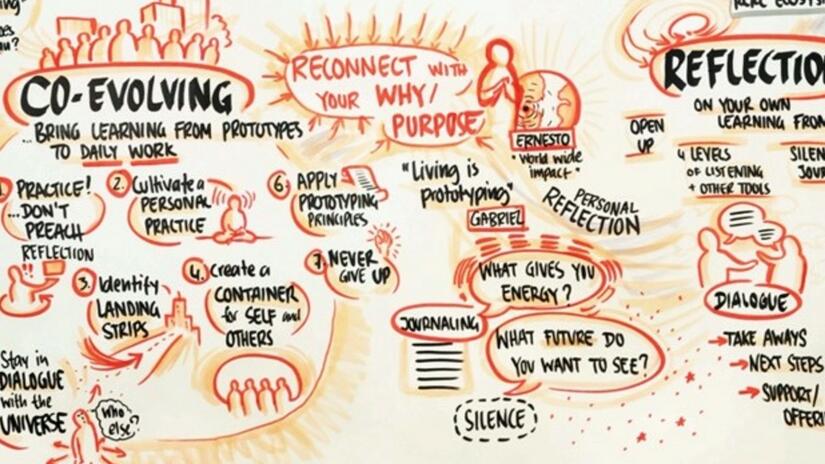 CO-EVOLVING
...BRING LEARNING FROM PROTOTYPES
TO DAILY WORK
PRACTICE!
...DON'T
PREACH
REFLECTION
2. Cultivate a
PERSONAL
PRACTICE
6. APPLY
PROTOTYPING
PRINCIPLES
3. Identify
LANDING
STRIPS
4. Create a
CONTAINER
for SELF and
OTHERS
7. NEVER
GIVE UP
Stay in
DIALOGUE
with the
UNIVERSE
Who
else?
RECONNECT WITH
YOUR WHY/
PURPOSE
ERNESTO
"World wide
impact"
"Living is
prototyping"
GABRIEL
PERSONAL
REFLECTION
WHAT GIVES YOU
ENERGY?
JOURNALING
WHAT FUTURE DO
YOU WANT TO SEE?
SILENCE
REFLECTIO
ON YOUR OWN
LEARNING FROM
OPEN
UP
4 LEVELS
OF LISTENING
+ OTHER TOOLS
SILEN
JOUR
DIALOGUE
→TAKE AWAYS
→NEXT STEPS
→SUPPORT/
OFFERI